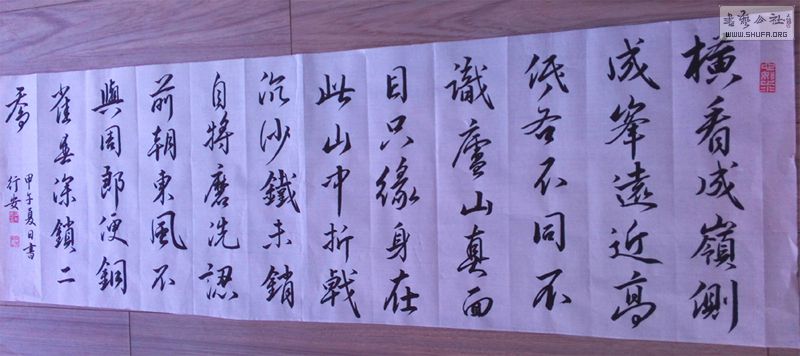 橫看成嶺側
成峯遠近高
低各不同不
識廬山真面
目只緣身在
此山中折戟
沉沙鐵未銷
自將磨洗認
前朝東風不
與周郎便銅
雀春深鎖二
喬
甲午夏日書
行安
書藝公社
WWW.SHUFA.ORG